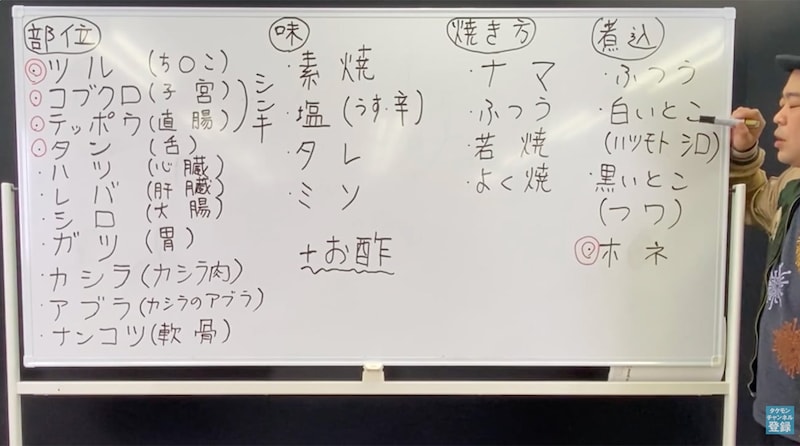 部位
ツル(ち〇こ)
コブクロ(子宮)
テッポウ(直腸)
シンキ
タン(舌)
ハツ(心臓)
レバ(肝臓)
シロ(大腸)
ガツ(胃)
カシラ(カシラ肉)
アブラ(カシラのアブラ)
ナンコツ(軟骨)
味
素焼
塩(うす・辛)
タレ
ミソ
+お酢
焼き方
ナマ
ふつう
若焼
よく焼
煮込
ふつう
白いとこ
(ハツモト シロ)
黒いとこ
(フワ)
ホネ
タケモン
チャンネル
登録